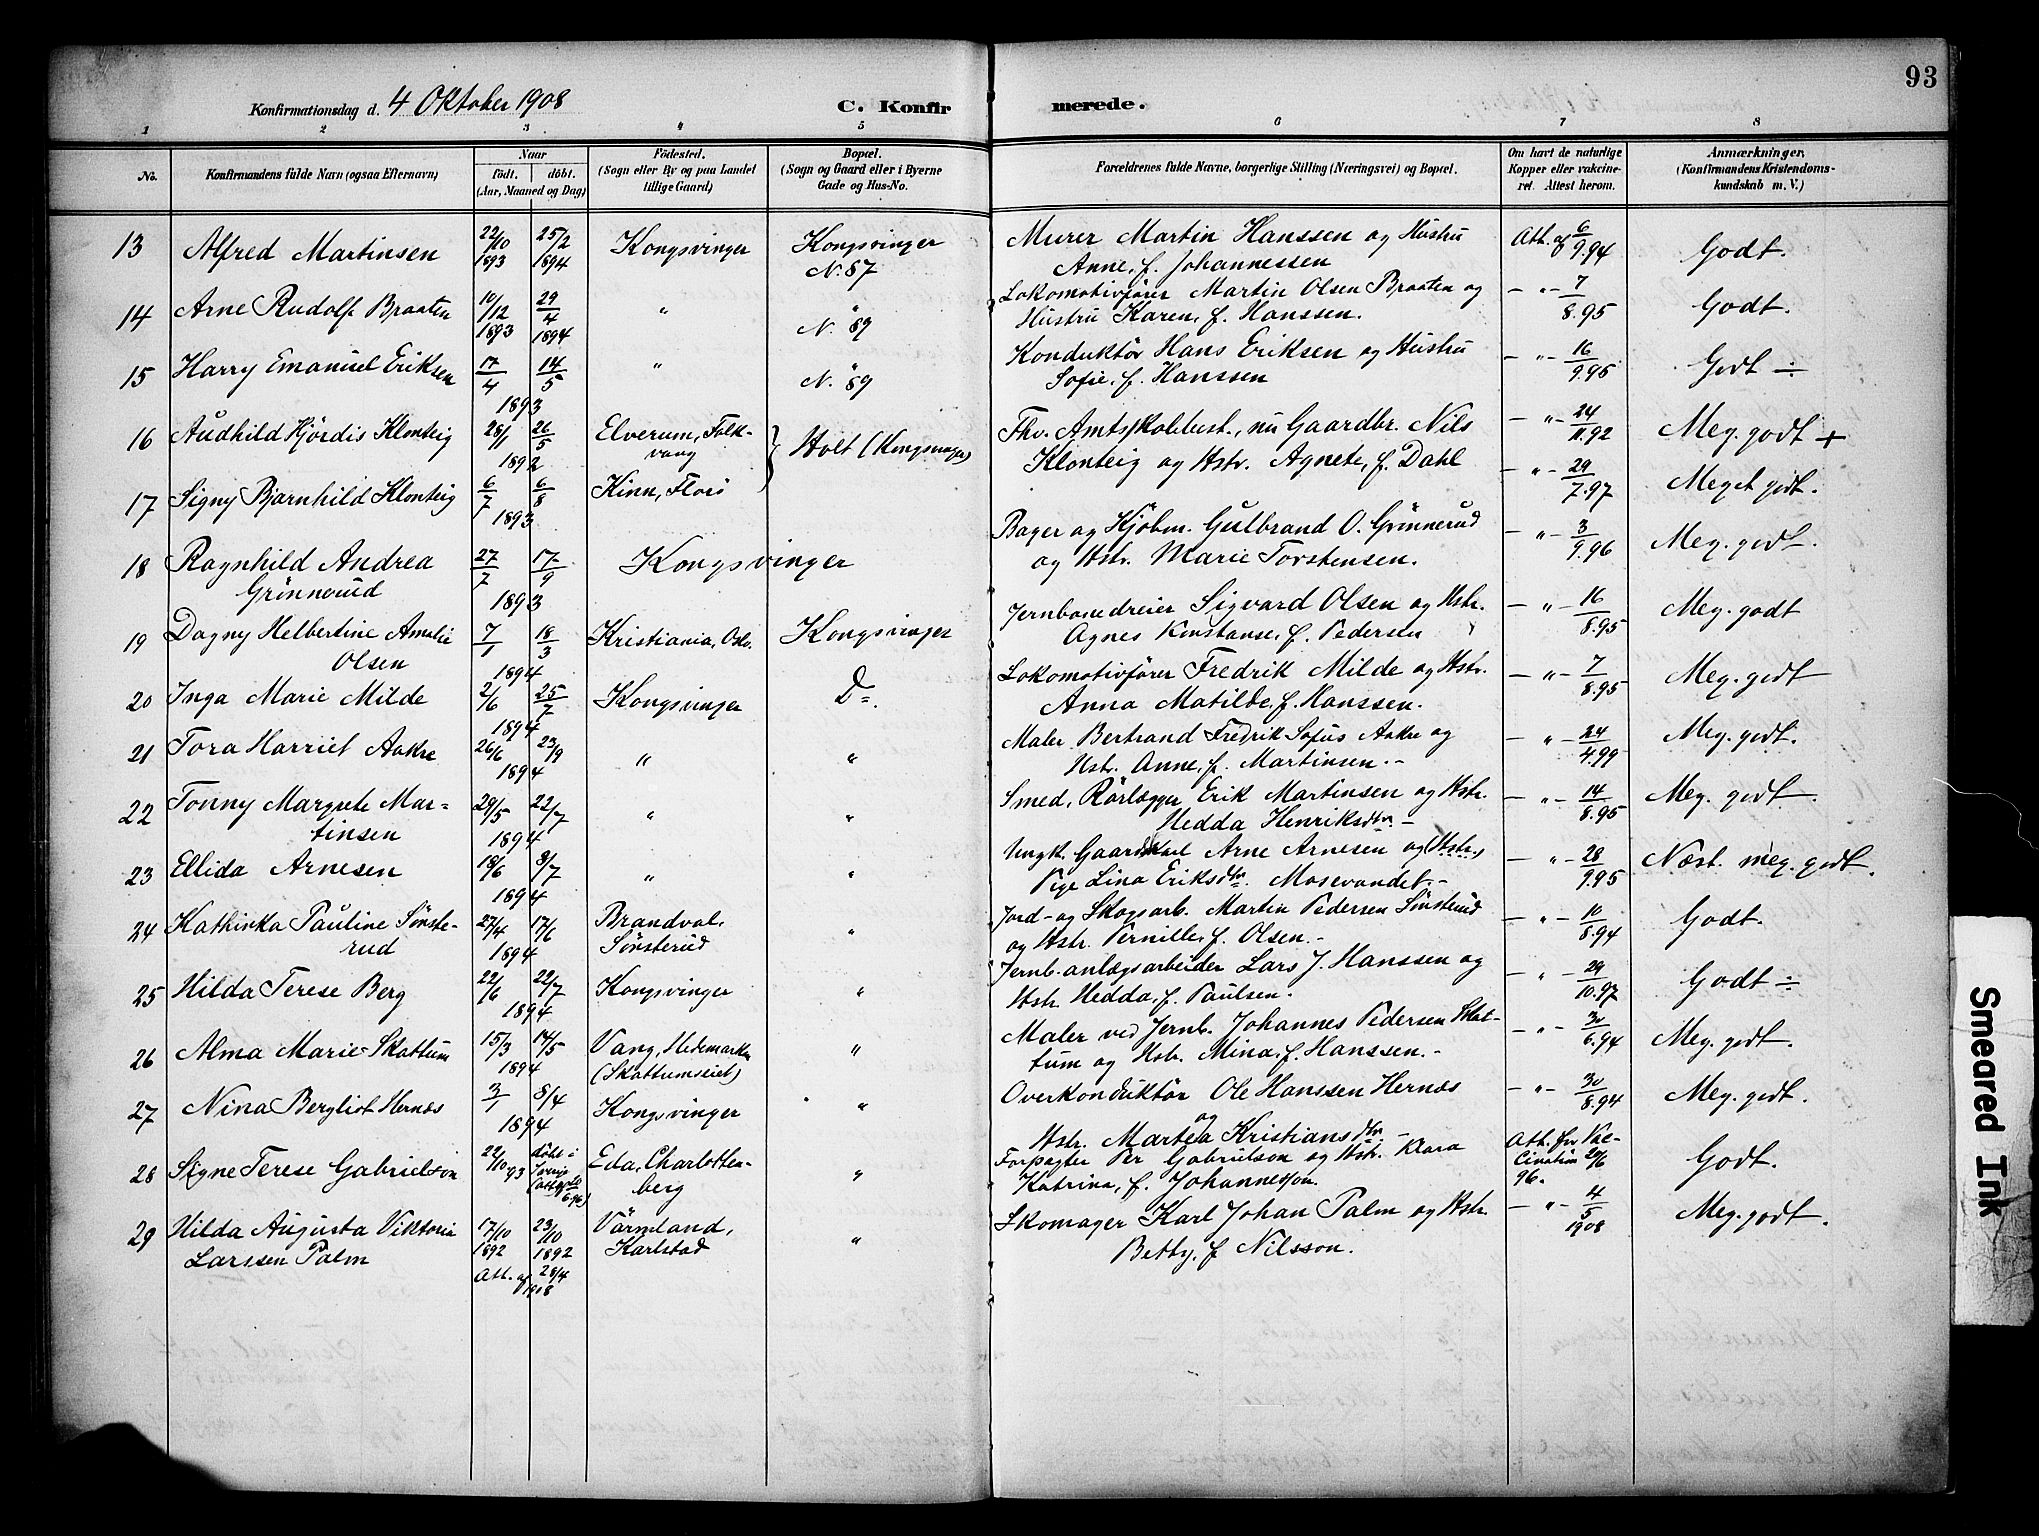 93
Konfirmationsdag d. 4 Oktober 1908
C. Konfirmerede.
1 2 3 4 5 6 7 8
No.
Konfirmandens fulde Navn (ogsaa Efternavn)
Naar
födt. döbt.
(Aar, Maaned og Dag)
Födested.
(Sogn eller By og paa Landet
tillige Gaard)
Bopæl.
(Sogn og Gaard eller i Byerne
Gade og Hus-No.
Forældrenes fulde Navne, borgerlige Stilling (Næringsvei) og Bopæl.
Om havt de naturlige
Kopper eller vakcine-
ret. Attest herom.
Anmærkninger.
(Konfirmandens Kristendoms-
kundskab m. V.)
13 Alfred Martinsen 22/10 1893 25/2 1894 Kongsvinger Kongsvinger N. 87 Murer Martin Hanssen og Hustru
Anne, f. Johannessen Att. af 6/9.94 Godt.
14 Arne Rudolf Braaten 10/12 1893 29/4 1894 " " N. 89 Lokomotivfører Martin Olsen Braaten og
Hustru Karen, f. Hanssen. — " — 7/8.95 Godt.
15 Harry Emanuel Eriksen 17/4 14/5 1893 " " N. 89 Konduktör Hans Eriksen og Hustru
Sofie, f. Hanssen — " — 16/9.95 Godt ÷
16 Audhild Hjördis Klonteig 28/1 26/5 1892 Elverum, Folk-
vang Holt (Kongsvinger) Fhv. Amtsskolebest., nu Gaardbr. Nils
Klonteig og Hstr. Agnete, f. Dahl — " — 24/11.92 Meg. godt +
17 Signy Bjarnhild Klonteig 6/7 6/8 1893 Kinn, Florö — " — 29/7.97 Meget godt.
18 Ragnhild Andrea
Grönnerud 27/7 17/9 1893 Kongsvinger Bager og Kjöbm. Gulbrand O. Grönnerud
og Hstr. Marie Torstensen. — " — 3/9.96 Meg. godt.
19 Dagny Helbertine Amalie
Olsen 7/1 18/3 1894 Kristiania, Oslo. Kongsvinger Jernbanedreier Sigvard Olsen og Hstr.
Agnes Konstanse, f. Pedersen — " — 16/8.95 Meg. godt
20 Inga Marie Milde 2/6 25/7 1894 Kongsvinger Do. Lokomotivförer Fredrik Milde og Hstr.
Anna Matilde, f. Hanssen. — " — 7/8.95 Meg. godt
21 Tora Harriet Aakre 26/6 23/9 1894 " " Maler Bertrand Fredrik Sofus Aakre og
Hstr. Anne, f. Martinsen. - — " — 24/4.99 Meg. godt.
22 Tonny Margrete Mar-
tinsen 29/5 22/7 1894 " " Smed, Rörlægger Erik Martinsen og Hstr.
Hedda Henriksdtr. - — " — 14/8.95 Meg. godt.
23 Ellida Arnesen 18/6 8/7 1894 " " Ungk. Gaardskarl Arne Arnesen og Hstr.,
Pige Lina Eriksdtr. Masevandet. - — " — 28/9.95 Næst. meg. godt.
24 Kathinka Pauline Sönste-
rud 27/4 17/6 1894 Brandval,
Sönsterud " Jord- og Skogsarb. Martin Pedersen Sönsterud
og Hstr. Pernille, f. Olsen. - — " — 10/8.94 Godt.
25 Hilda Terese Berg 22/6 22/7 1894 Kongsvinger " Jernb. anlægsarbeider Lars J. Hanssen og
Hstr. Hedda, f. Paulsen. — " — 29/10.97 Godt ÷
26 Alma Marie Skattum 15/3 14/5 1894 Vang, Hedemarken
(Skattumseiet) " Maler ved Jernb. Johannes Pedersen Skat-
tum og Hstr. Mina, f. Hanssen. - — " — 30/6.94 Meg. godt.
27 Nina Bergliot Hernæs 3/1 8/4 1894 Kongsvinger " Overkonduktör Ole Hanssen Hernæs
og
Hstr. Martea Kristiansdtr. - — " — 30/8.94 Meg. godt.
28 Signe Terese Gabrielson 22/10 93 döbt i Eda, Charlotten-
berg " Forpagter Per Gabrielson og Hstr. Klara
Katrina, f. Johannesson. Att. for Vac-
cination 29/6
96. Godt.
29 Hilda Augusta Viktoria
Larssen Palm 17/10 1892 23/10 1892
Att. af 28/4 1908 Värmland,
Karlstad " Skomager Karl Johan Palm og Hstr.
Betty, f. Nilsson. — " — 4/5 1908 Meg. godt.
Smeared Ink